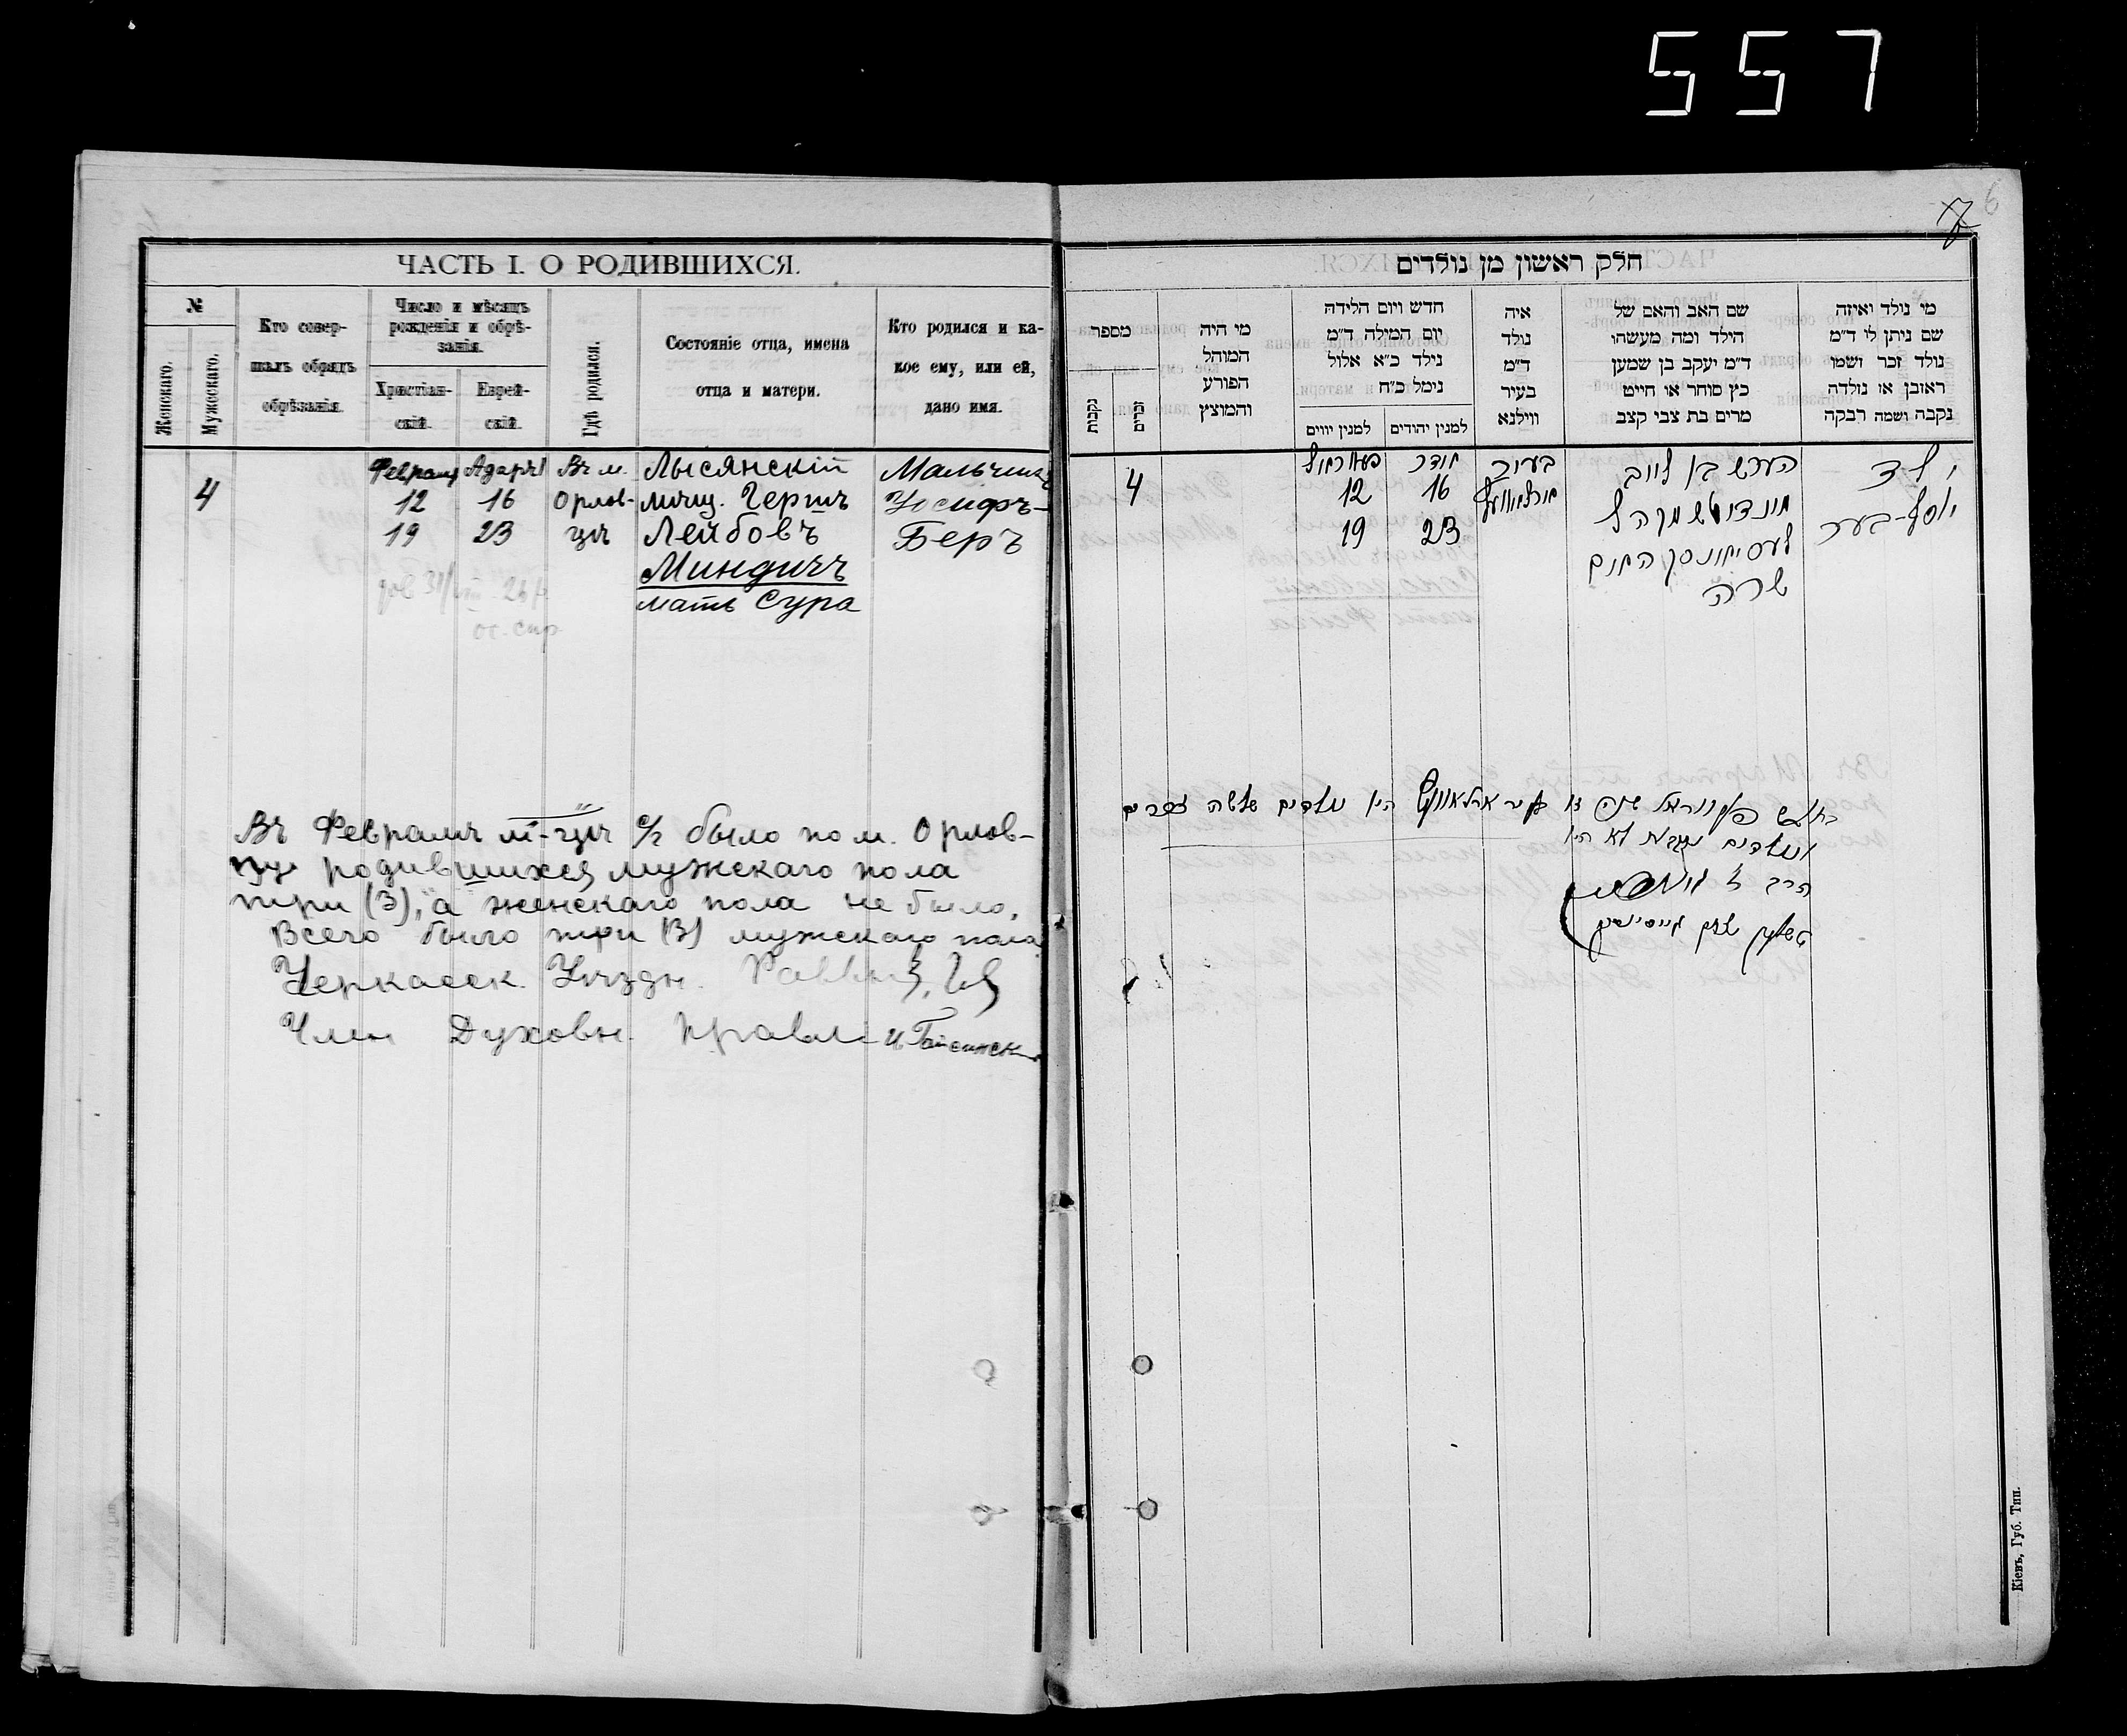 557
7
6
ЧАСТЬ I. О РОДИВШИХСЯ.
№
Женскаго.
Мужескаго.
Кто совер-
шалъ обрядъ
обрѣзанія.
Число и мѣсяцъ
рожденія и обрѣ-
занія.
Христіан-
скій.
Еврей-
скій.
Гдѣ родился.
Состояніе отца, имена
отца и матери.
Кто родился и ка-
кое ему, или ей,
дано имя.
4
Февраля
12
19
Адаръ I
16
23
Въ м.
Орлов-
цѣ
Лысянскій
мѣщ. Гершъ
Лейбовъ
Миндичъ
мать Сура
Мальчикъ
Іосифъ-
Беръ
Въ Февралѣ м-цѣ с/г было по м. Орлов-
цу родившихся мужескаго пола
три (3), а женскаго пола не было.
Всего было три (3) мужскаго пола
Черкасск. Уѣздн. Раввин
Член Духовн. Правл. И Гайсинск
חלק ראשון מן נולדים
מספר
נקבות
זכרים
מי היה
המוהל
הפורע
והמוצץ
חדש ויום הלידה
יום המילה ד"מ
נילד כ"א אלול
נימל כ"ח
למנין יווים
למנין יהודים
איה
נולד
ד"מ
בעיר
ווילנא
שם האב והאם של
הילד ומה מעשהו
ד"מ יעקב בן שמען
כץ סוחר או חייט
מרים בת צבי קצב
מי נולד ואיזה
שם ניתן לו ד"מ
נולד זכר ושמו
ראובן או נולדה
נקבה ושמה רבקה
4
12
19
אדר
16
23
בעיר
הערש בן לייב
שרה
ילד
יוסף-בער
Кіевъ, Губ. Тип.